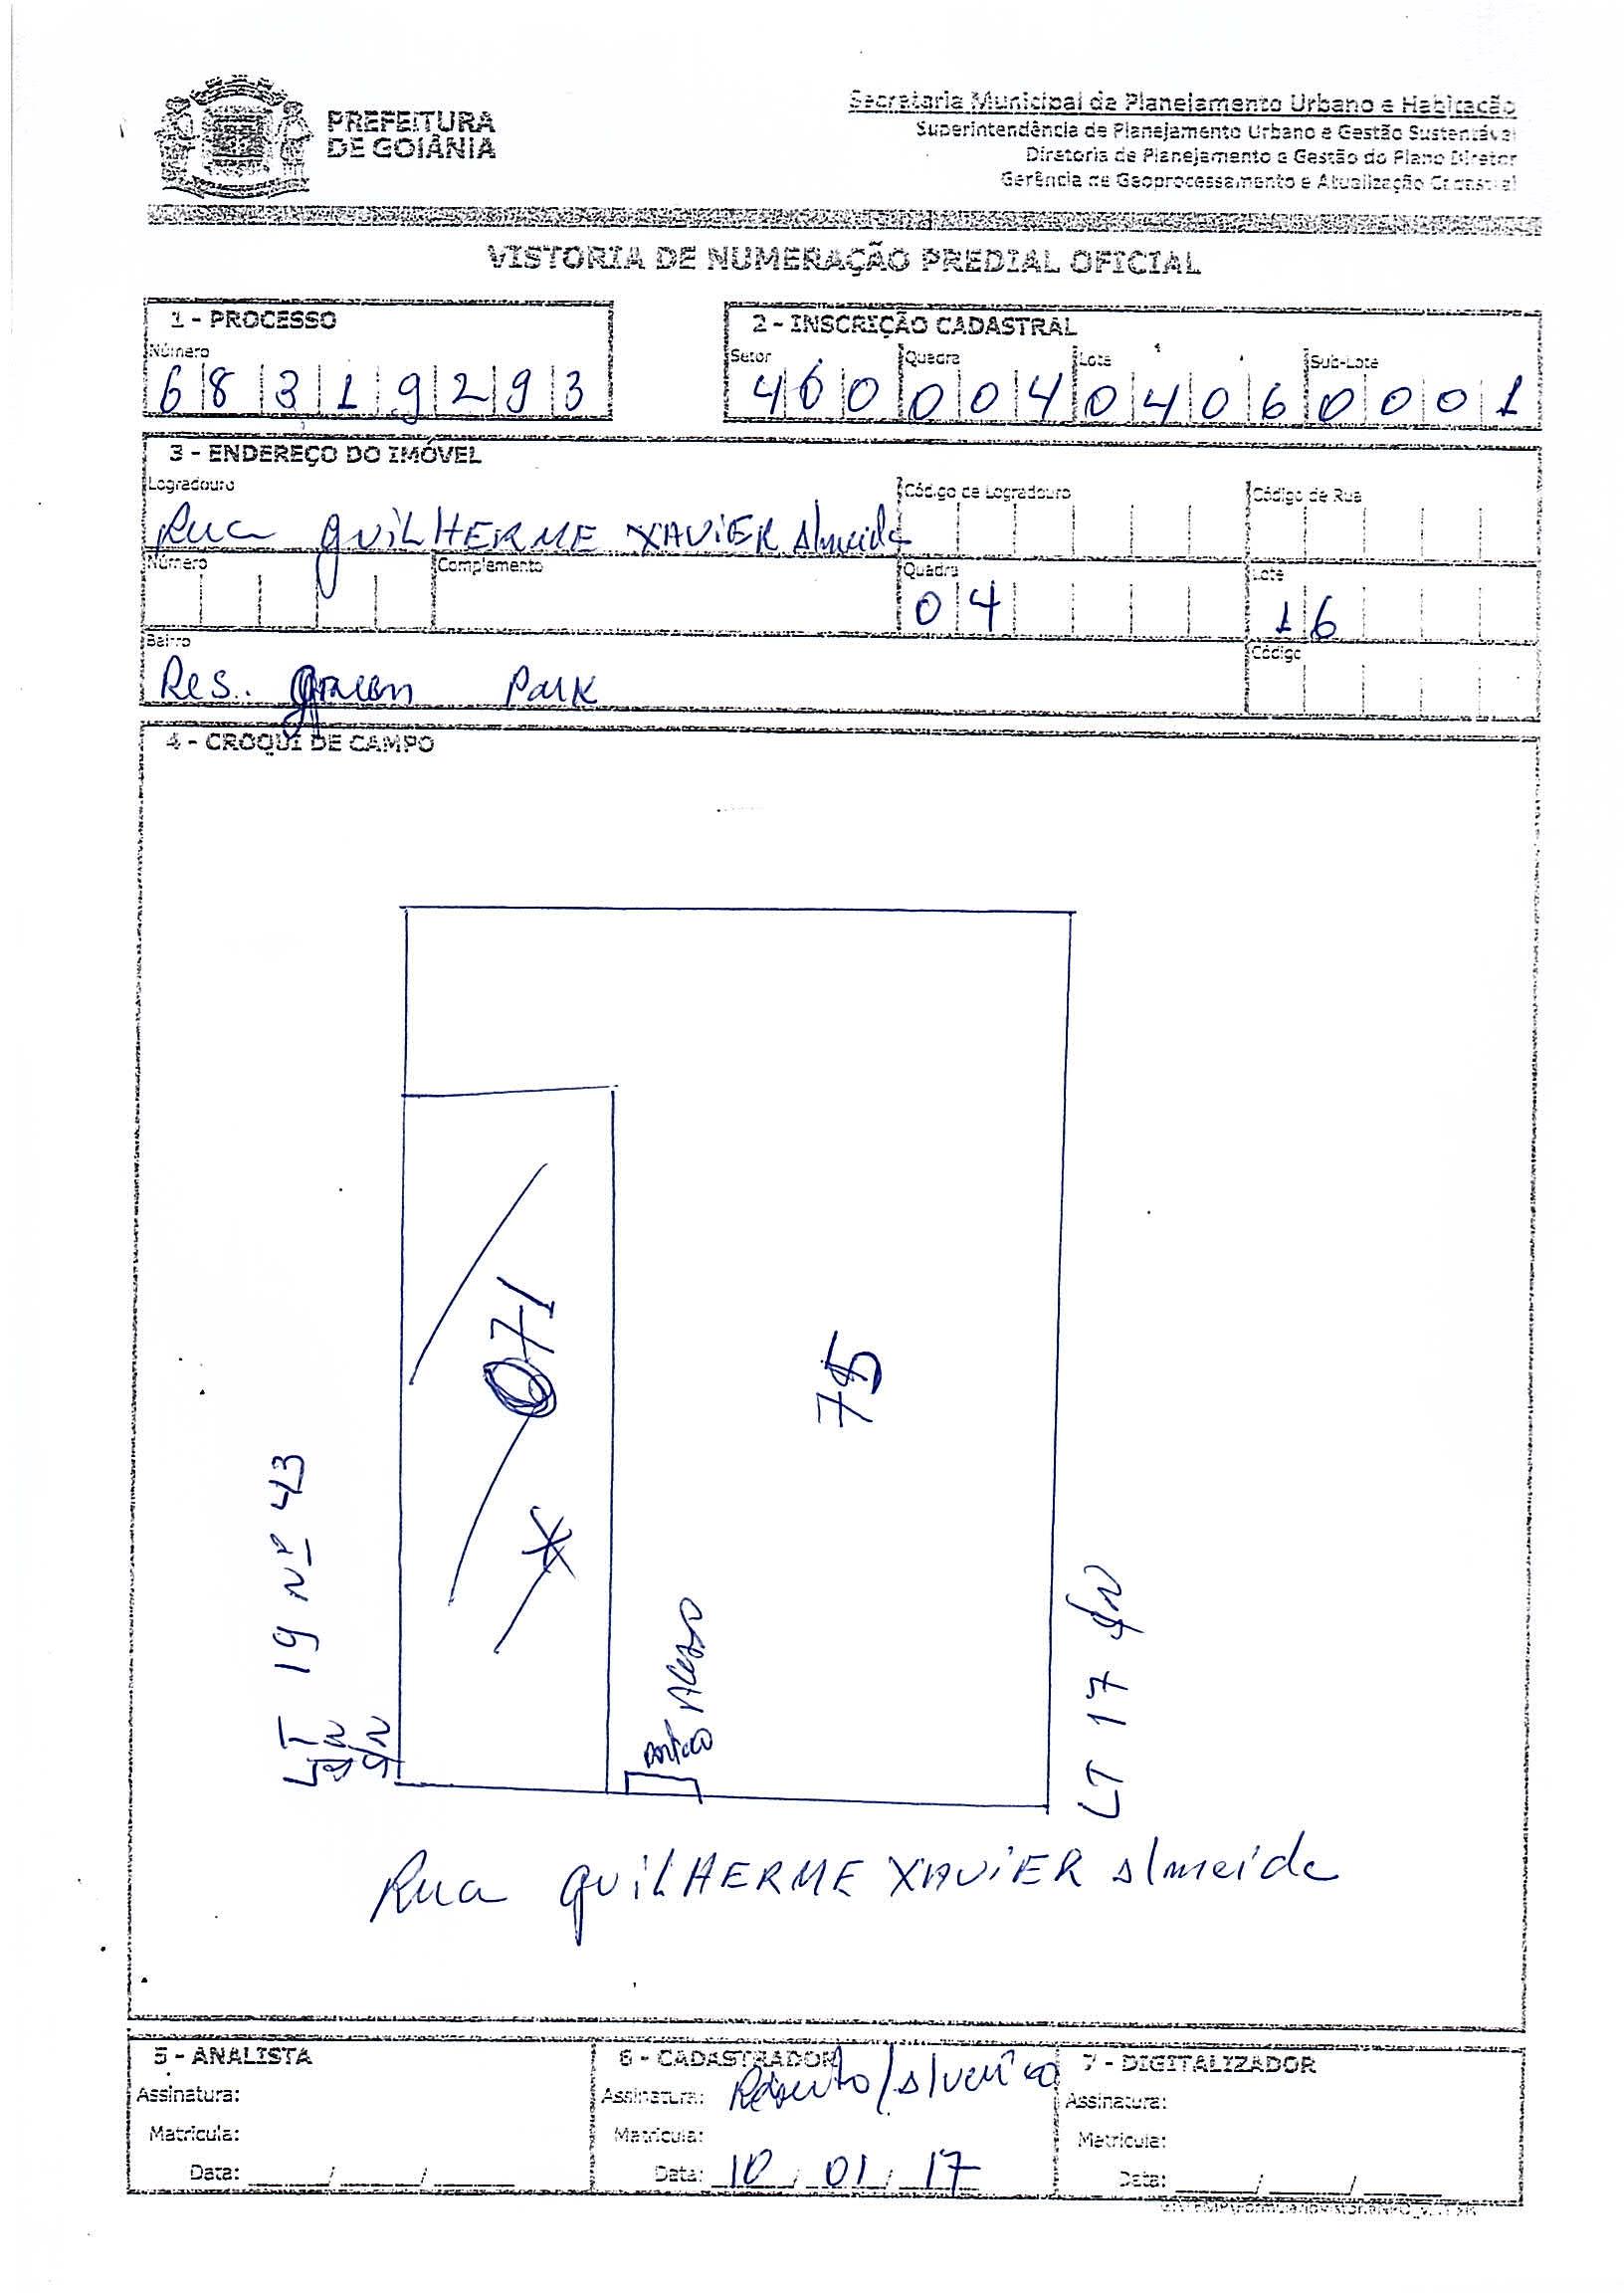 PREFEITURA
DE GOIÂNIA
Secretaria Municipal de Planejamento Urbano e Habitação
Superintendência de Planejamento Urbano e Gestão Sustentável
Diretoria de Planejamento e Gestão do Plano Diretor
Gerência de Geoprocessamento e Atualização Cadastral
VISTORIA DE NUMERAÇÃO PREDIAL OFICIAL
1 - PROCESSO
Número
6 8 3 1 9 2 9 3
2 - INSCRIÇÃO CADASTRAL
Setor Quadra Lote Sub-Lote
4 6 0 0 0 4 0 4 0 6 0 0 0 1
3 - ENDEREÇO DO IMÓVEL
Logradouro Código de Logradouro Código de Rua
Rua GUILHERME XAVIER Almeida
Número Complemento Quadra Lote
0 4 1 6
Bairro Código
Res. Green Park
4 - CROQUI DE CAMPO
071
75
LT 19 Nº 43
S/N
Portão Acesso
LT 17 S/N
Rua GUILHERME XAVIER Almeida
5 - ANALISTA
Assinatura:
Matricula:
Data: ____/____/____
6 - CADASTRADOR
Assinatura:
Matricula:
Data: 10/01/17
7 - DIGITALIZADOR
Assinatura:
Matricula:
Data: ____/____/____